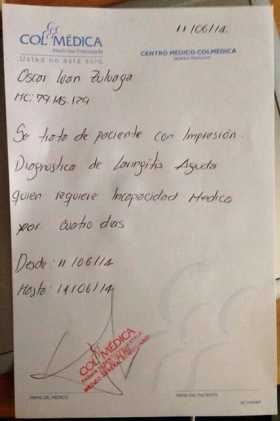 11/06/14.
COLMÉDICA
Medicina Prepagada
Usted no está solo
CENTRO MÉDICO COLMÉDICA
Oscar Ivan Zuluaga
HC:
Se trata de paciente con Impresión
Diagnostica de Laringitis Aguda
quien requiere Incapacidad Medica
por cuatro dias
Desde: 11/06/14
Hasta: 14/06/14
COLMÉDICA
FIRMA DEL MÉDICO
FIRMA DEL PACIENTE